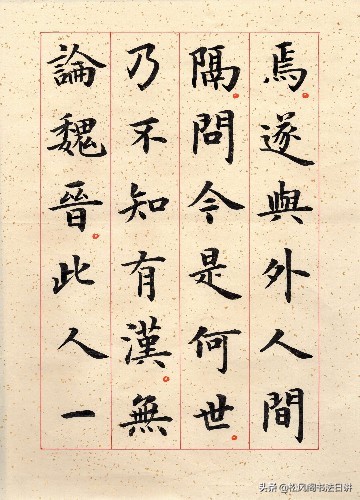 焉遂與外人間
隔問今是何世
乃不知有漢無
論魏晉此人一
头条 @松风阁书法日讲